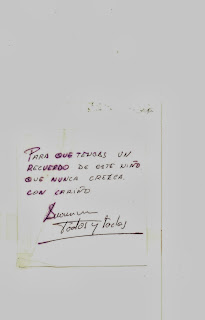 PARA QUE TENGAS UN
RECUERDO DE ESTE NIÑO
QUE NUNCA CREZCA
CON CARIÑO
Todos y todas